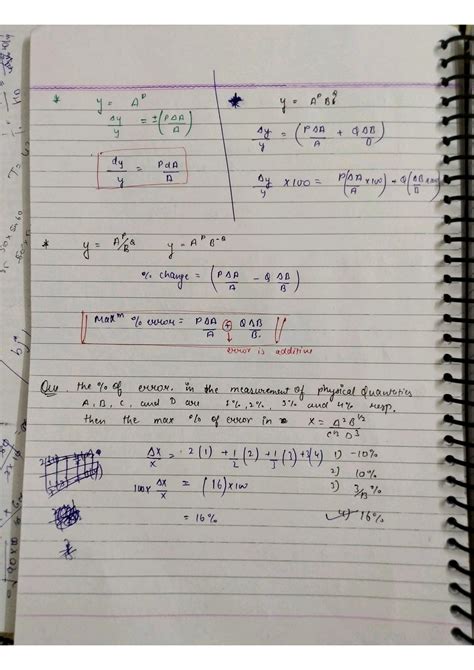 * y = A^P
Δy/y = ±(PΔA/A)
dy/y = PdA/A
* y = A^P B^Q
Δy/y = (PΔA/A + QΔB/B)
Δy/y × 100 = P(ΔA/A × 100) + Q(ΔB/B × 100)
* y = A^P/B^Q y = A^P B^-Q
% change = (PΔA/A - QΔB/B)
Max^m % error = PΔA/A + QΔB/B.
error is additive
Que. the % of error. in the measurement of physical quantities
A, B, C, and D are 1%, 2%, 3% and 4% resp.
then the max % of error in X = A²B^1/2 / C^1/3 D³
Δx/x = 2(1) + 1/2(2) + 1/3(3) + 3(4)
100 x Δx/x = (16) x 100
= 16%
1) -10%
2) 10%
3) 3/13 %
4) 16%